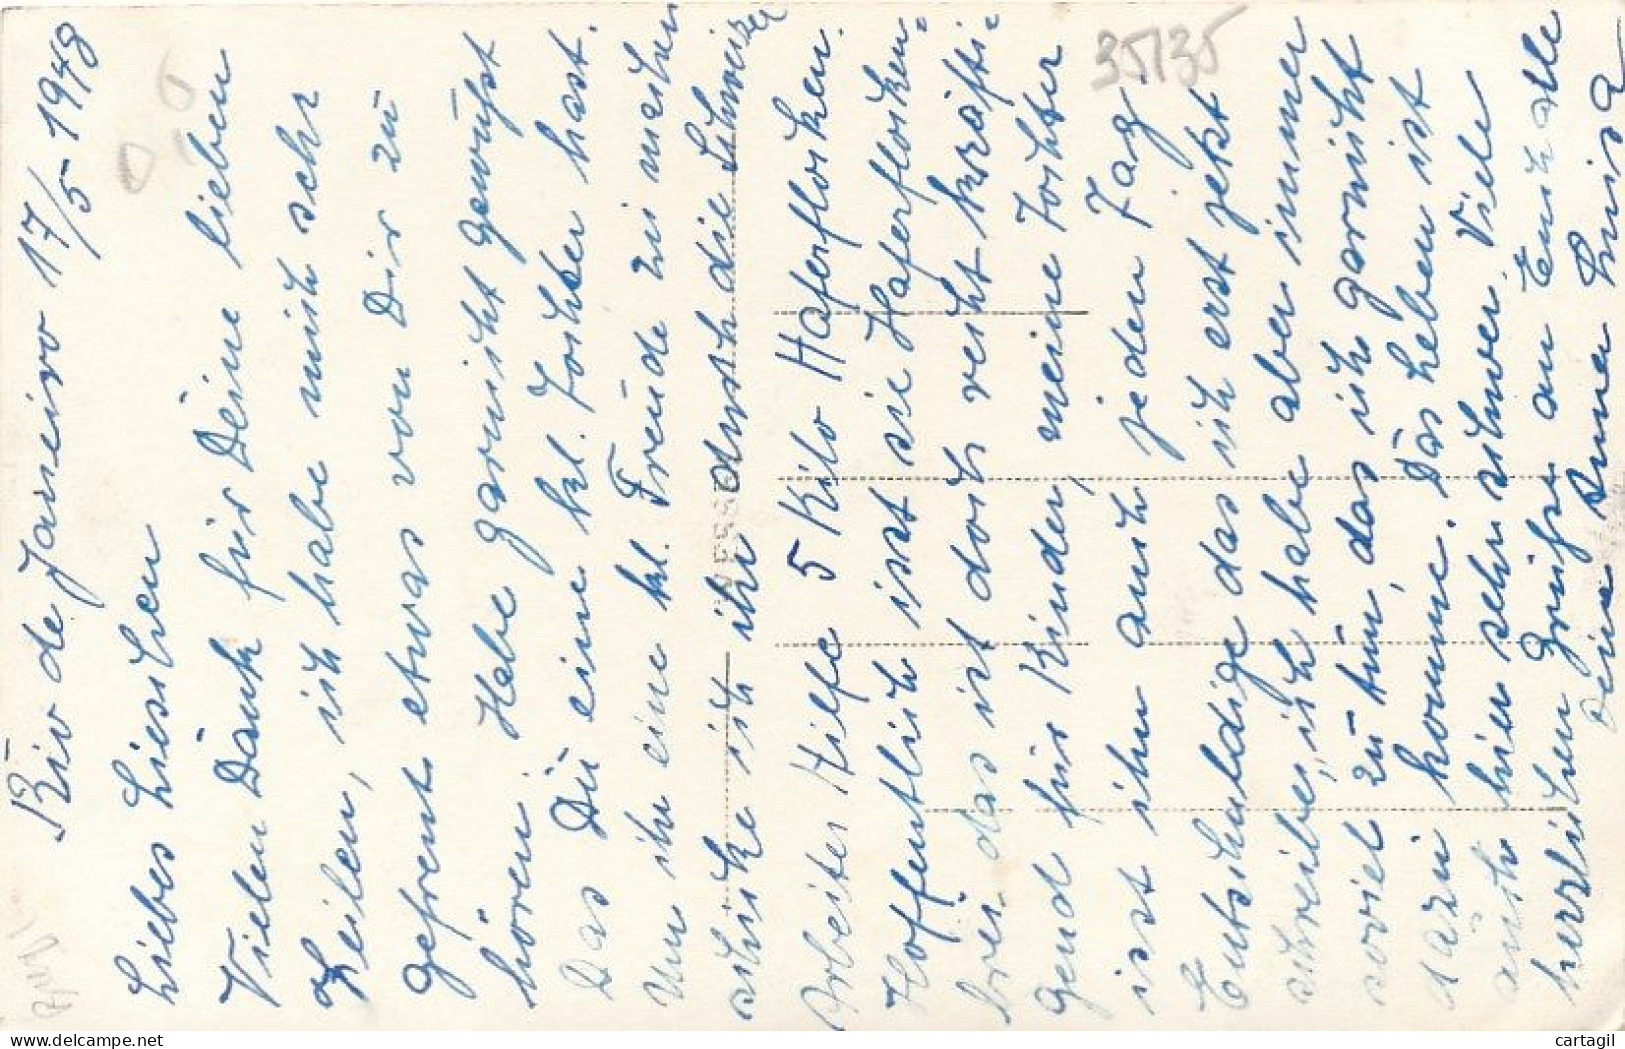 Rio de Janeiro 17/5-1948
Liebes Lieschen
Vielen Dank für Deine lieben
Zeilen, ich habe mich sehr
gefreut etwas von Dir zu
hören. Habe garnicht gewußt
Das Du eine kl. Tochter hast.
Um ihr eine kl. Freude zu machen
schicke ich ihr durch die Schweizer
Arbeiter Hilfe 5 Kilo Haferflocken.
Hoffentlich isst sie Haferflocken-
brei, das ist doch recht kräfti-
gend für Kinder, meine Tochter
isst ihn auch jeden Tag.
Entschuldige das ich erst jetzt
schreibe, ich habe aber immer
soviel zu tun, das ich garnicht
dazu komme. Das Leben ist
auch hier sehr schwer. Viele
herzlichen Grüße an Euch alle
Deine Luisa
35135
www.delcampe.net
cartagil